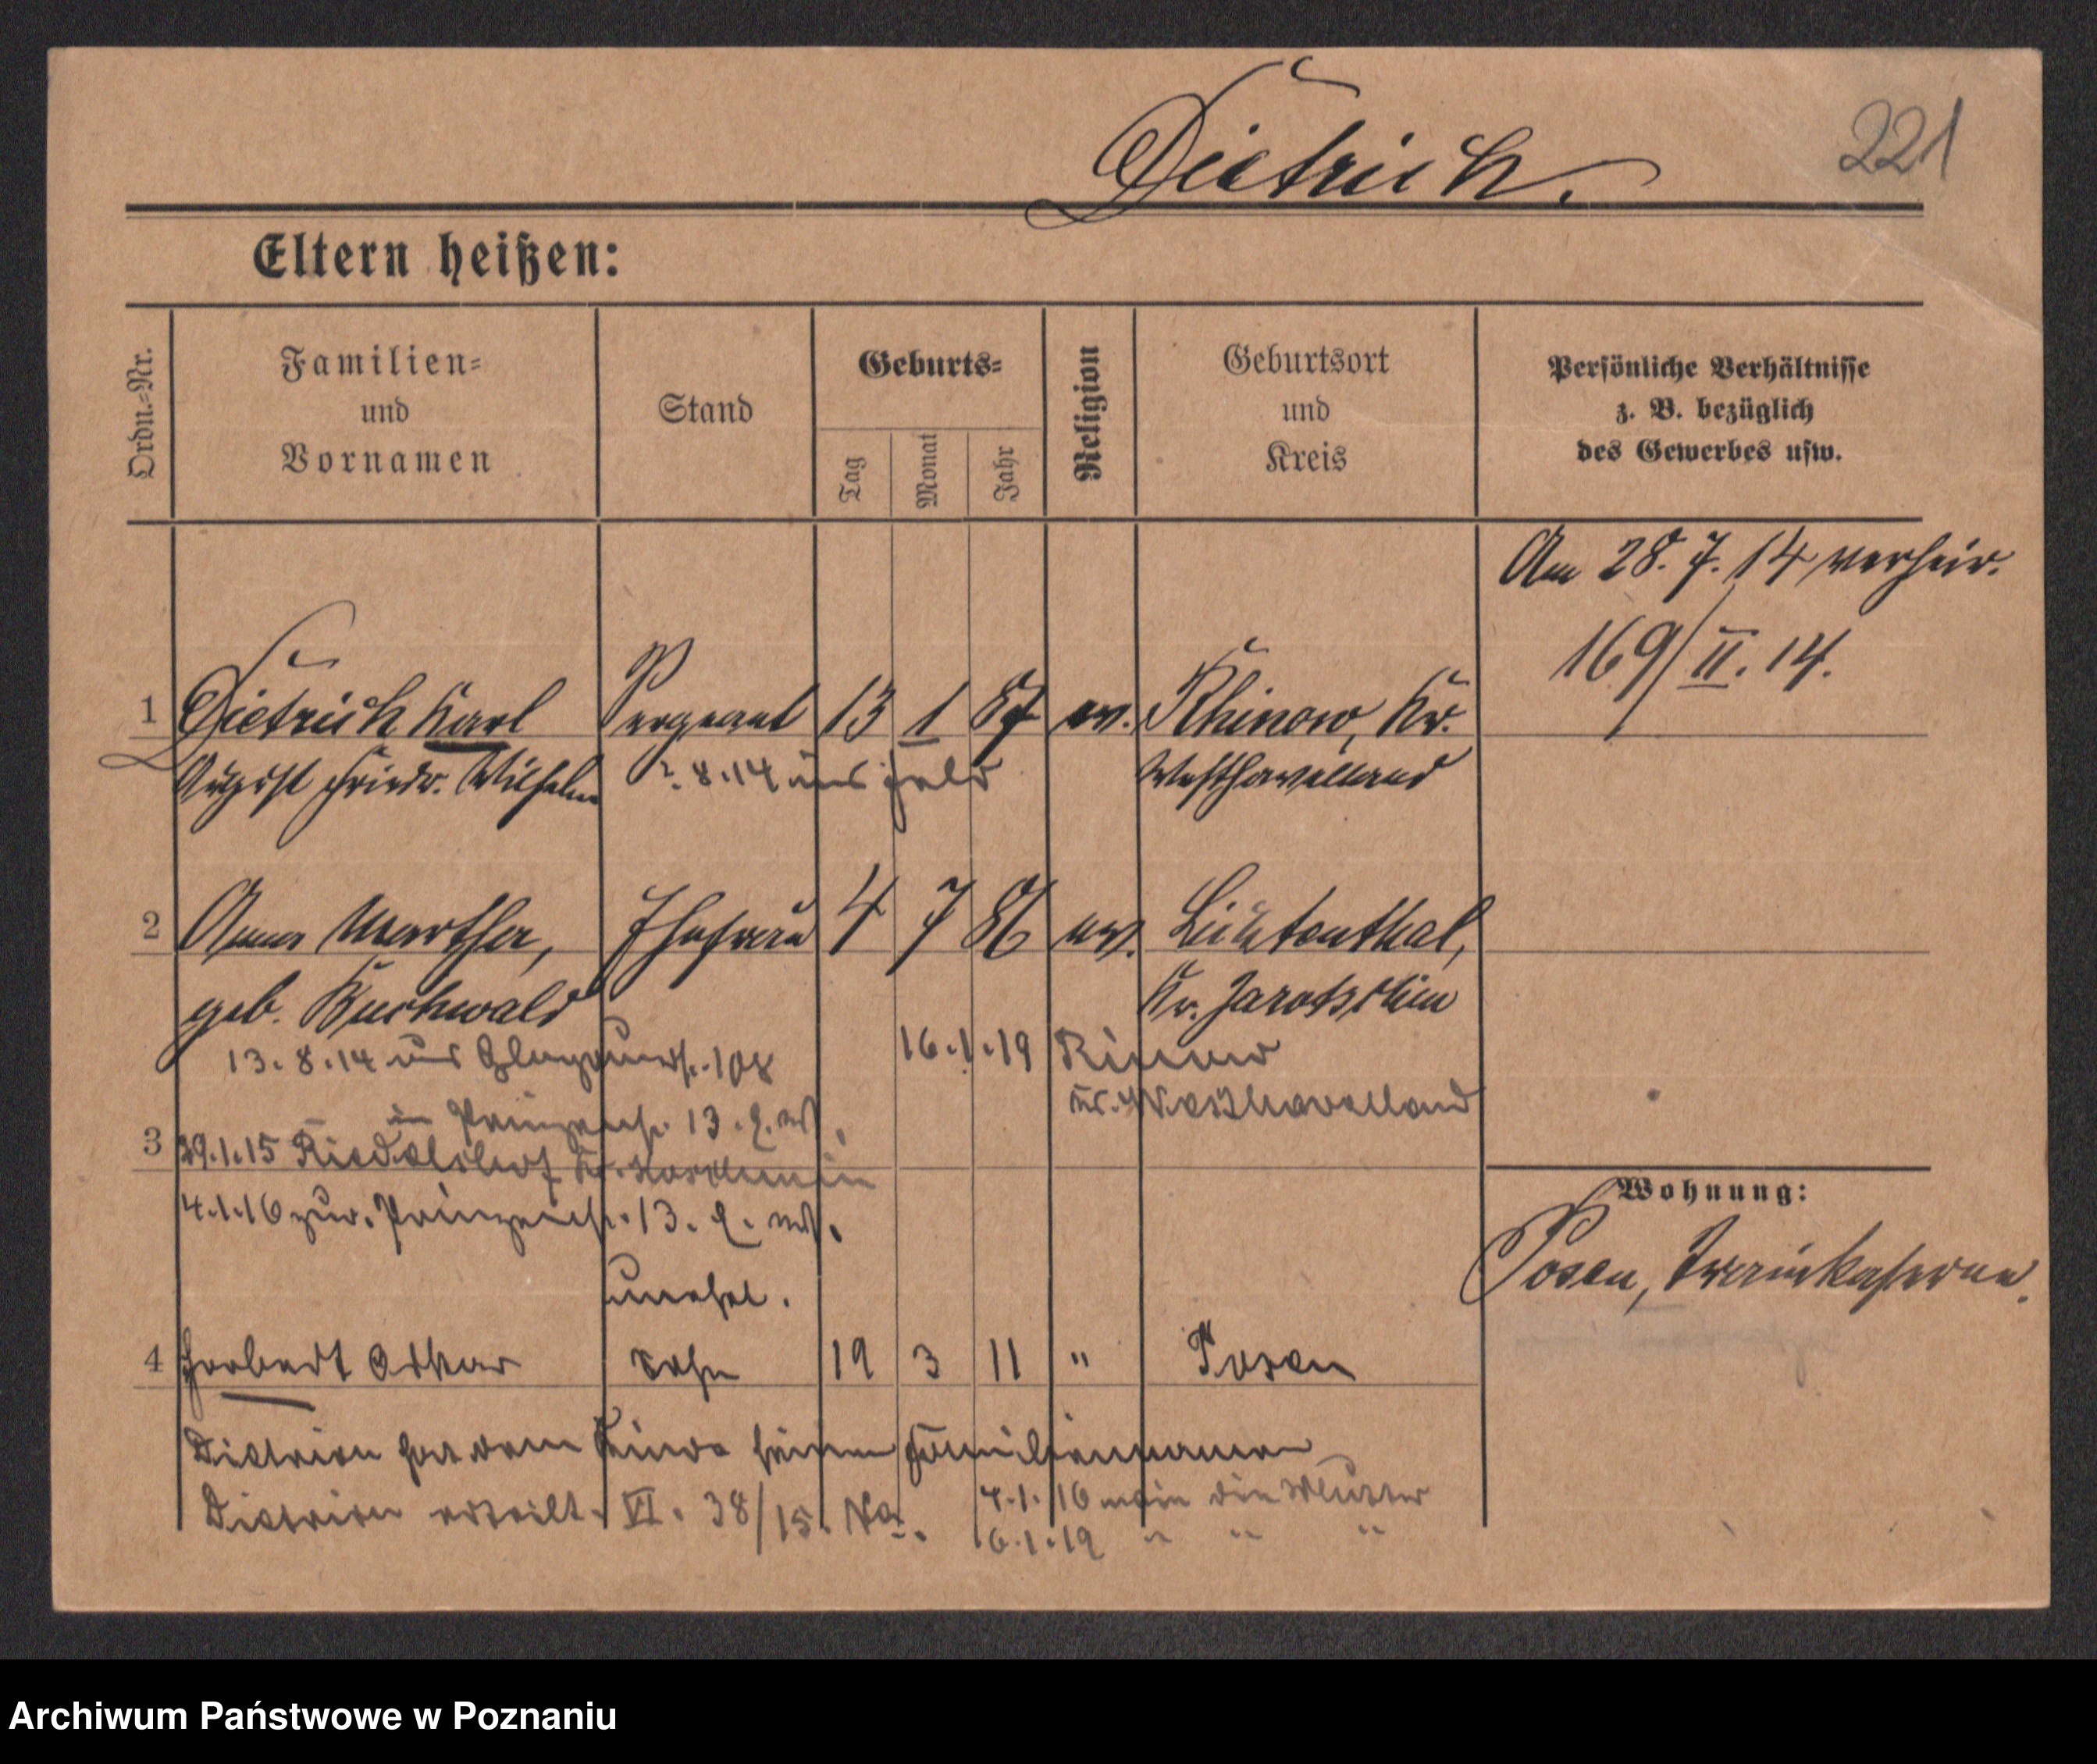 Dietrich.
221
Eltern heißen:
Ordn.-Nr.
Familien-
und
Vornamen
Stand
Geburts-
Tag
Monat
Jahr
Religion
Geburtsort
und
Kreis
Persönliche Verhältnisse
z. B. bezüglich
des Gewerbes usw.
Am 28. 7. 14 verheir.
169/II. 14.
1 Dietrich Karl Sergeant 13 1 87 ev. Rhinow, Kr.
August Friedr. Wilhelm 2. 8. 14 ins Feld Westhavelland
2 Anna Martha, Ehefrau 4 7 86 ev. Lichtenthal,
geb. Buchwald Kr. Jarotschin
13. 8. 14 108 16. 1. 19 Rinow
Kr. Westhavelland
in Prinzenstr. 13.
3 29.1.15 Kr. Koschmin
4.1.16 zur. Prinzenstr. 13.
Wohnung:
Posen, Trainkaserne.
unehel.
4 Herbert Oskar Sohn 19 3 11 " Posen
Dietrich hat dem Kinde seinen Familiennamen
Dietrich erteilt. VI. 38/15.
4.1.16 wie die Mutter
16.1.19 " " "
Archiwum Państwowe w Poznaniu